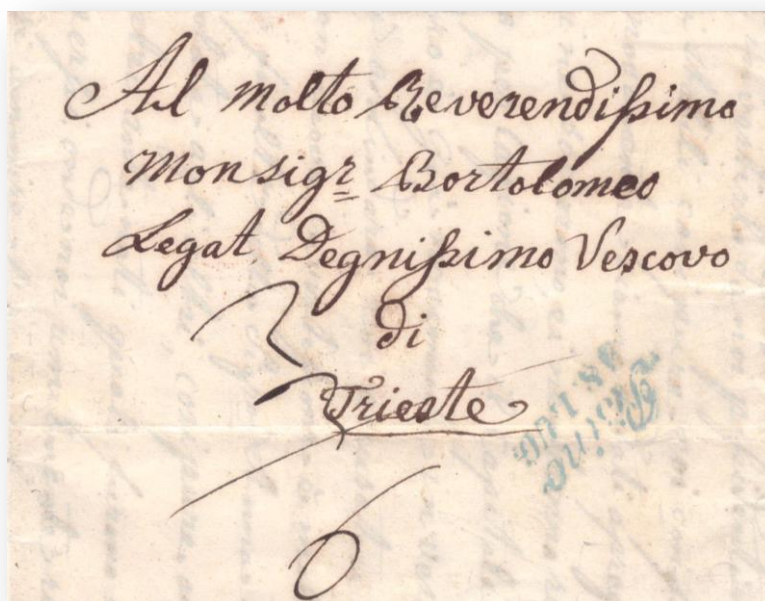 Al Molto Reverendissimo
Monsigr. Bortolomeo
Legat Degnissimo Vescovo
di
Trieste
Pisino
28 LUG.
6